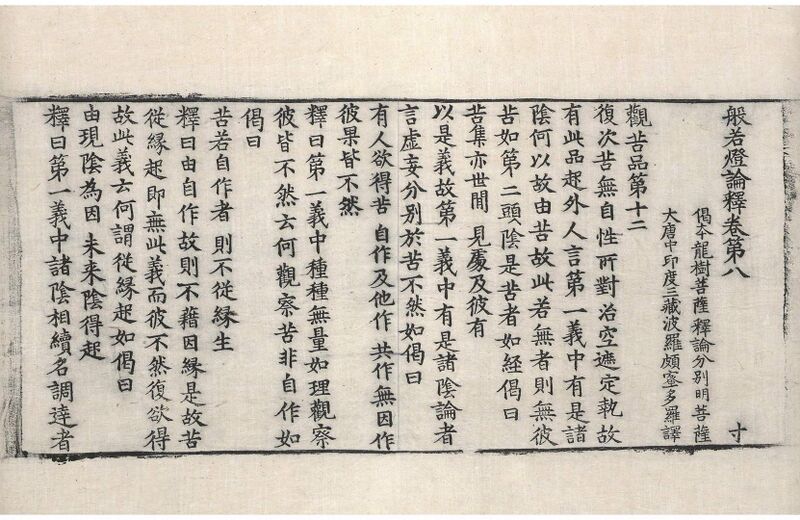 般若燈論釋卷第八 寸
偈本龍樹菩薩 釋論分別明菩薩
大唐中印度三藏波羅頗蜜多羅譯
觀苦品第十二
復次苦無自性所對治空遮定執故
有此品起外人言第一義中有是諸
陰何以故由苦故此若無者則無彼
苦如第二頭陰是苦者如經偈曰
苦集亦世間 見處及彼有
以是義故第一義中有是諸陰論者
言虛妄分別於苦不然如偈曰
有人欲得苦 自作及他作 共作無因作
彼果皆不然
釋曰第一義中種種無量如理觀察
彼皆不然云何觀察苦非自作如
偈曰
苦若自作者 則不從緣生
釋曰由自作故則不藉因緣是故苦
從緣起即無此義而彼不然復欲得
故此義云何謂從緣起如偈曰
由現陰為因 未來陰得起
釋曰第一義中諸陰相續名調達者